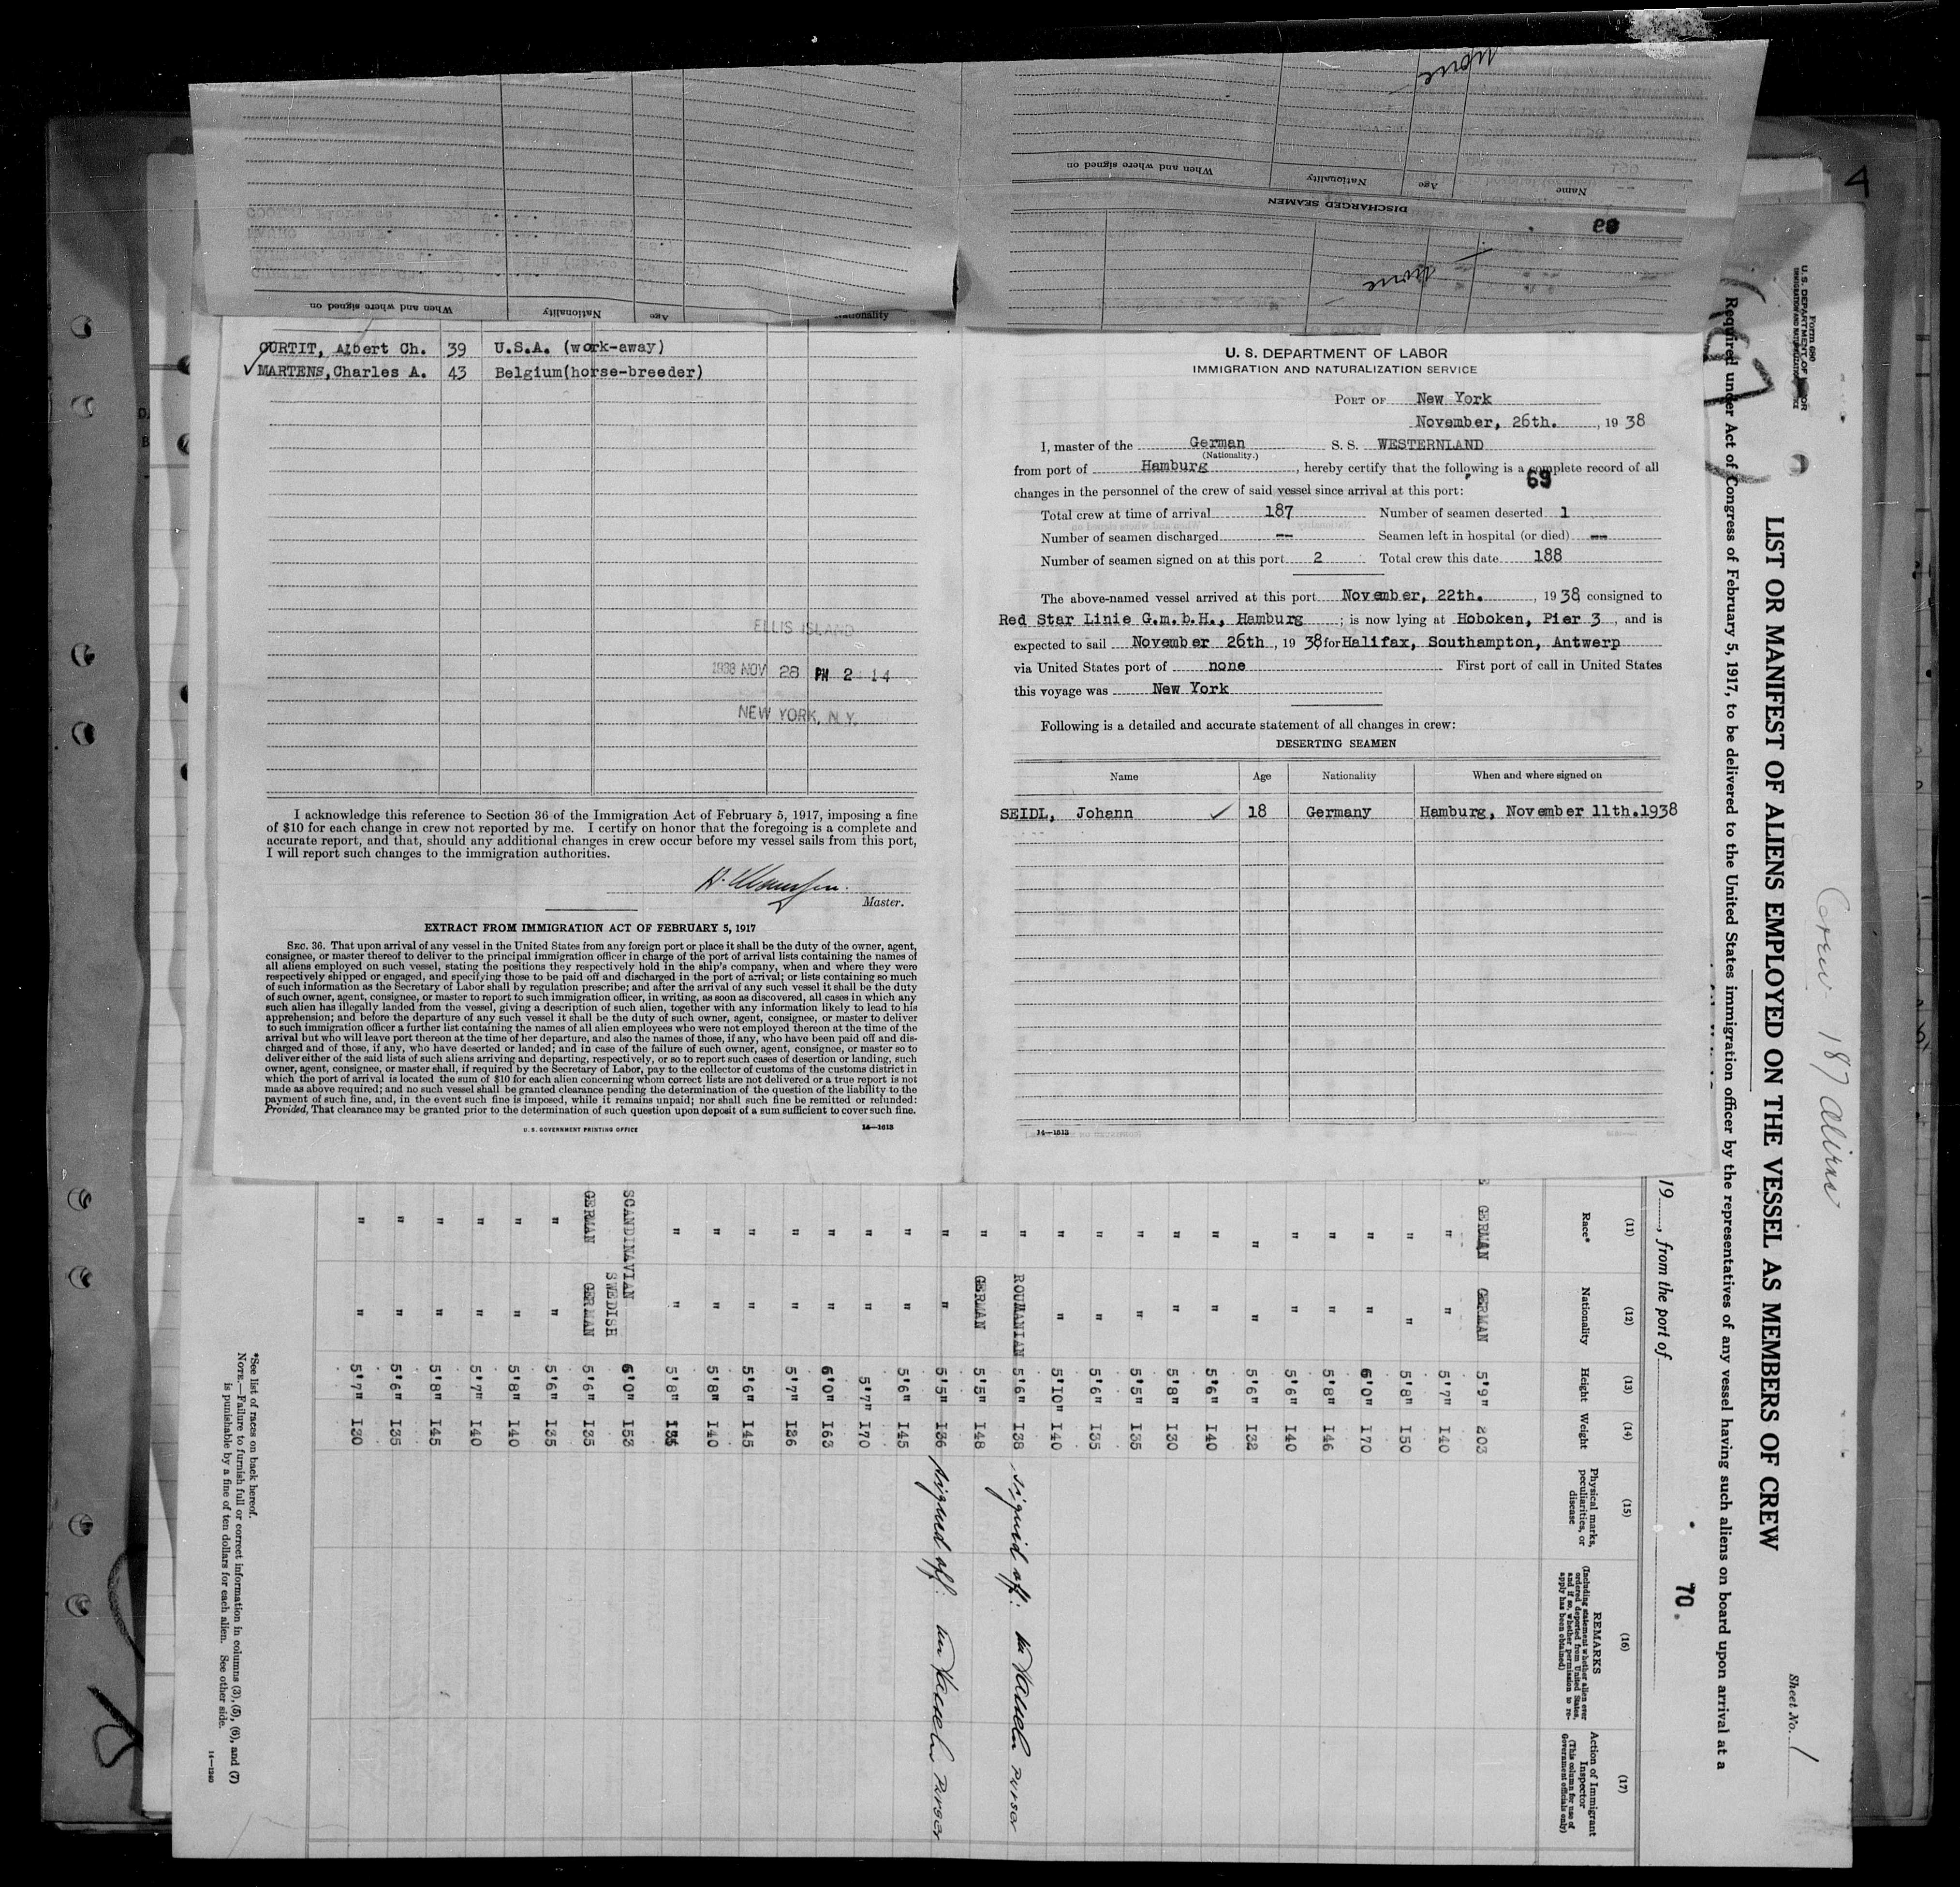 none
When and where signed on
Nationality
Age
Name
DISCHARGED SEAMEN
69
none
When and where signed on
Nationality
Age
Nationality
CURTIT, Albert Ch. 39 U.S.A. (work-away)
MARTENS, Charles A. 43 Belgium(horse-breeder)
ELLIS ISLAND
1938 NOV 28 PM 2 14
NEW YORK, N.Y.
I acknowledge this reference to Section 36 of the Immigration Act of February 5, 1917, imposing a fine
of $10 for each change in crew not reported by me. I certify on honor that the foregoing is a complete and
accurate report, and that, should any additional changes in crew occur before my vessel sails from this port,
I will report such changes to the immigration authorities.
Master.
EXTRACT FROM IMMIGRATION ACT OF FEBRUARY 5, 1917
SEC. 36. That upon arrival of any vessel in the United States from any foreign port or place it shall be the duty of the owner, agent,
consignee, or master thereof to deliver to the principal immigration officer in charge of the port of arrival lists containing the names of
all aliens employed on such vessel, stating the positions they respectively hold in the ship's company, when and where they were
respectively shipped or engaged, and specifying those to be paid off and discharged in the port of arrival; or lists containing so much
of such information as the Secretary of Labor shall by regulation prescribe; and after the arrival of any such vessel it shall be the duty
of such owner, agent, consignee, or master to report to such immigration officer, in writing, as soon as discovered, all cases in which any
such alien has illegally landed from the vessel, giving a description of such alien, together with any information likely to lead to his
apprehension; and before the departure of any such vessel it shall be the duty of such owner, agent, consignee, or master to deliver
to such immigration officer a further list containing the names of all alien employees who were not employed thereon at the time of the
arrival but who will leave port thereon at the time of her departure, and also the names of those, if any, who have been paid off and dis-
charged and of those, if any, who have deserted or landed; and in case of the failure of such owner, agent, consignee, or master so to
deliver either of the said lists of such aliens arriving and departing, respectively, or so to report such cases of desertion or landing, such
owner, agent, consignee, or master shall, if required by the Secretary of Labor, pay to the collector of customs of the customs district in
which the port of arrival is located the sum of $10 for each alien concerning whom correct lists are not delivered or a true report is not
made as above required; and no such vessel shall be granted clearance pending the determination of the question of the liability to the
payment of such fine, and, in the event such fine is imposed, while it remains unpaid; nor shall such fine be remitted or refunded:
Provided, That clearance may be granted prior to the determination of such question upon deposit of a sum sufficient to cover such fine.
U. S. GOVERNMENT PRINTING OFFICE 14—1613
U. S. DEPARTMENT OF LABOR
IMMIGRATION AND NATURALIZATION SERVICE
PORT OF New York
November, 26th. , 19 38
I, master of the German S. S. WESTERNLAND
(Nationality.)
from port of Hamburg , hereby certify that the following is a complete record of all
69
changes in the personnel of the crew of said vessel since arrival at this port:
Total crew at time of arrival 187 Number of seamen deserted 1
Number of seamen discharged -- Seamen left in hospital (or died) --
Number of seamen signed on at this port 2 Total crew this date 188
The above-named vessel arrived at this port November, 22th. , 19 38, consigned to
Red Star Linie G.m.b.H., Hamburg ; is now lying at Hoboken, Pier 3 , and is
expected to sail November 26th , 19 38 for Halifax, Southampton, Antwerp
via United States port of none First port of call in United States
this voyage was New York
Following is a detailed and accurate statement of all changes in crew:
DESERTING SEAMEN
Name Age Nationality When and where signed on
SEIDL, Johann 18 Germany Hamburg, November 11th.1938
14—1613
Form 680
U. S. DEPARTMENT OF LABOR
IMMIGRATION AND NATURALIZATION SERVICE
Crew 187 aliens
Sheet No. 1
LIST OR MANIFEST OF ALIENS EMPLOYED ON THE VESSEL AS MEMBERS OF CREW
Required under Act of Congress of February 5, 1917, to be delivered to the United States immigration officer by the representatives of any vessel having such aliens on board upon arrival at a
187
19 , from the port of
70.
(11) (12) (13) (14) (15) (16) (17)
Race* Nationality Height Weight Physical marks, peculiarities, or disease REMARKS (Including statement whether alien ever ordered deported from United States, and if so, whether permission to re-apply has been obtained) Action of Immigrant Inspector (This column for use of Government officials only)
GERMAN GERMAN 5'9" 203
" " 5'7" 140
" " 5'8" 150
" " 6'0" 170
" " 5'8" 146
" " 5'6" 140
" " 5'6" 132
" " 5'6" 140
" " 5'8" 130
" " 5'5" 135
" " 5'6" 135
" " 5'10" 140
" ROUMANIAN 5'6" 138 signed off: Purser
" GERMAN 5'5" 148
" " 5'5" 136 signed off: Purser
" " 5'6" 145
" " 5'7" 170
" " 6'0" 163
" " 5'7" 126
" " 5'6" 145
" " 5'8" 140
" " 5'8"
SCANDINAVIAN SWEDISH 6'0" 153
GERMAN GERMAN 5'6" 135
" " 5'6" 135
" " 5'8" 140
" " 5'7" 140
" " 5'8" 145
" " 5'6" 135
" " 5'7" 130
*See list of races on back hereof.
NOTE.—Failure to furnish full or correct information in columns (3), (5), (6), and (7)
is punishable by a fine of ten dollars for each alien. See other side.
14—1240